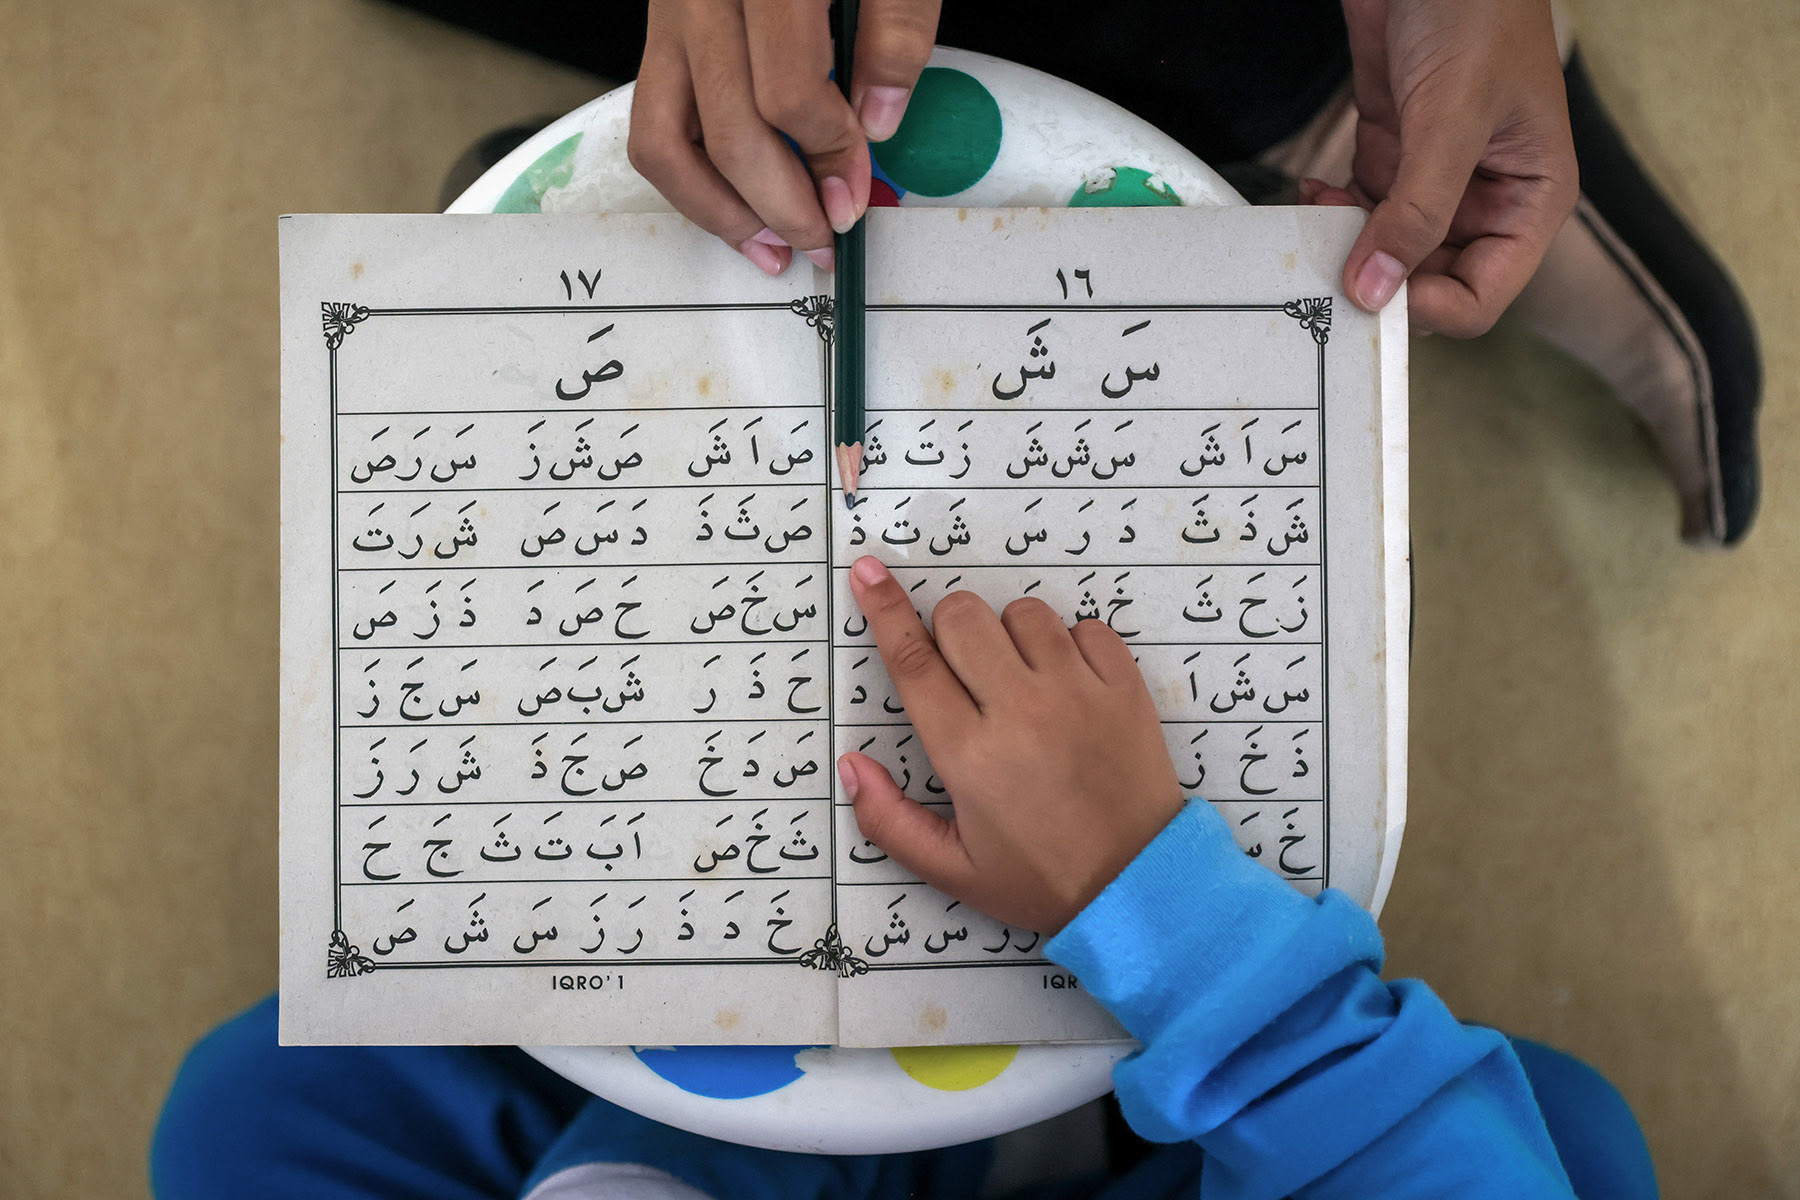 ١٦
سَ شَ
سَ اَ شَ سَ شَ شَ زَ تَ شَ
شَ ذَ ثَ دَ رَ سَ شَ تَ ذَ
زَ حَ ثَ خَ شَ
سَ شَ اَ دَ
ذَ خَ زَ زَ
خَ سَ
سَ شَ
١٧
صَ
صَ اَ شَ صَ شَ زَ سَ رَ صَ
صَ ثَ ذَ دَ سَ صَ شَ رَ تَ
سَ خَ صَ حَ صَ دَ ذَ زَ صَ
حَ ذَ رَ شَ بَ صَ سَ جَ زَ
صَ دَ خَ صَ جَ ذَ شَ رَ زَ
ثَ خَ صَ اَ بَ تَ ثَ جَ حَ
خَ دَ ذَ رَ زَ سَ شَ صَ
IQRO' 1